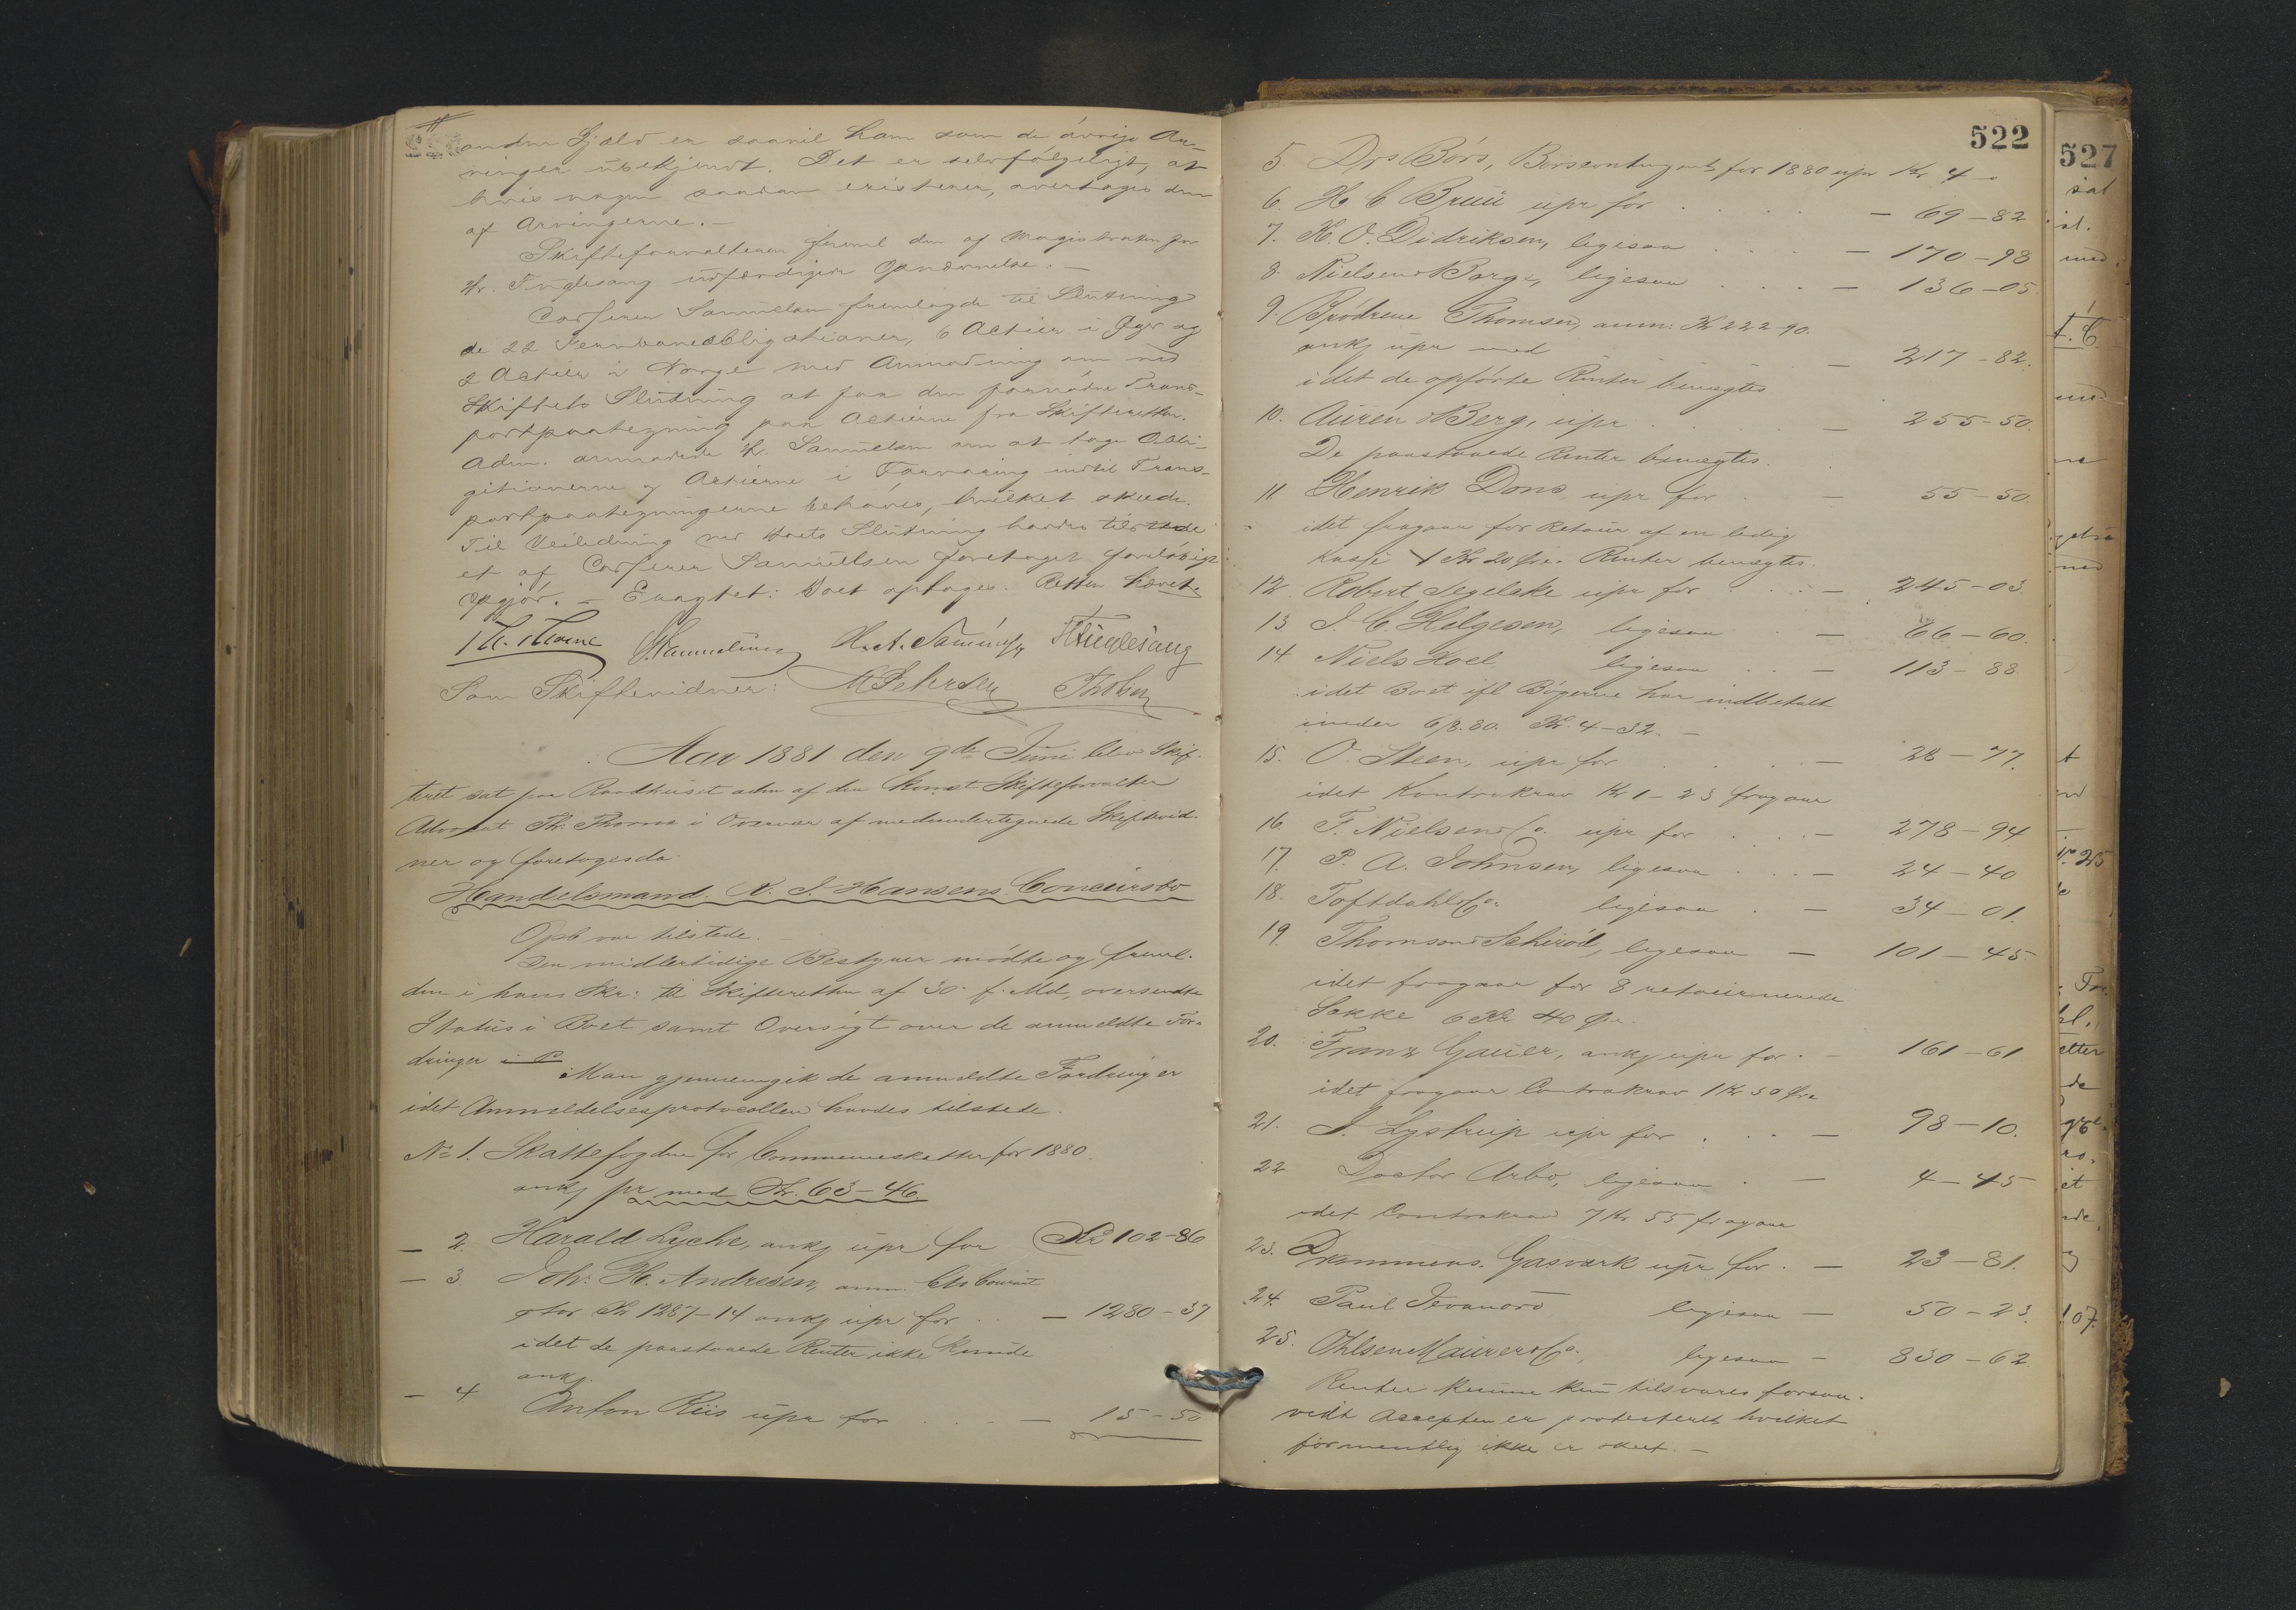 anden Gjæld er saavel ham som de øvrige Ar-
vinger ubekjendt. Det er selvfølgeligt, at
hvis nogen saadan existerer, overtages den
af Arvingerne. —
Skifteforvalteren freml den af Magistraten for
Hr. Fuglesang udfærdigede Opnævnelse. —
Casserer Samuelsen fremlagde til Slutning
de 22 Jernbaneobligationer, 6 Actier i Ægir og
2 Actier i Norge med Anmodning om ved
Skiftets Slutning at faa den fornødne Trans-
portpaategning paa Actierne fra Skifteretten.
Adm. anmodede Hr. Samuelsen om at tage Obli-
gationerne og Actierne i Forvaring indtil Trans-
portpaategningerne behøves, hvilket skede.
Til Veiledning ved Boets Slutning havdes tilstede
et af Casserer Samuelsen foretaget foreløbigt
Opgjør. — Eragtet: Boet optages. Retten hævet.
Th. Thorne Samuelsen H. A. Samuelsen Fuglesang
Som Skiftevidner: M Pehrsen
Aar 1881 den 9de Juni blev Skif-
teret sat paa Raadhuset adm af den konst Skifteforvalter
Advokat Th. Thorne i Overvær af medundertegnede Skiftevid-
ner og foretoges da
Handelsmand N. J. Hansens Concursbo
Opb var tilstede. —
Den midlertidige Bestyrer mødte og freml.
den i hans Skr. til Skifteretten af 30. f. Md, oversendte
Status i Boet samt Oversigt over de anmeldte For-
dringer
Man gjennemgik de anmeldte Fordringer
idet Anmeldelsesprotocollen havdes tilstede.
No 1. Skattefogden for Communeskatter for 1880
ankj pr med Kr. 63-46
— 2 Harald Lyche, ankj upr for Kr 102-86
— 3 Joh. H. Andresen, anm. Cto Courant
stor Kr 1287-14 ankj upr for . . — 1280-37
idet de paastaaede Renter ikke kunde
ankj.
— 4. Anton Riis upr for . . . — 15-50
522
5. Drs Børs, Børscontingent for 1880 upr Kr 4 —
6. H C Bruu upr for . . . . — 69-82
7. H. O. Didriksen, ligesaa . . . — 170-98
8. Nielsen & Borge, ligesaa . . . — 136-05
9. Brødrene Thomsen, anm: Kr 222-90.
ankj upr med — 217-82.
idet de opførte Renter benægtes
10. Auren & Berg, upr . . . — 255-50.
De paastaaede Renter benægtes.
11 Henrik Dons upr for . — 55-50.
idet fragaar for Retour af en ledig
Kasse 1 Kr 20 Øre. Renter benægtes.
12 Robert Segelcke upr for . . . — 245-03.
13 J. C. Helgesen, ligesaa . . — 66-60.
14 Niels Hoel ligesaa . . — 113-88
idet Boet ifl Bøgerne har indbetalt
under 6/8.80. Kr. 4-32. —
15. O. Steen, upr for . . . — 28-77.
idet Kontrakrav Kr 1-23 fragaar
16. F. Nielsen & Co. upr for . . . — 278-94
17. P. A. Johnsen, ligesaa . . . — 24-40
18. Toftdahl & Co. ligesaa . — 34-01.
19. Thomson & Schiöd, ligesaa — 101-45.
idet fragaar for 8 retournerede
Sække 6 Kr 40 Øre.
20. Franz Gauer, ankj upr for . — 161-61
idet fragaar Contrakrav 1 Kr 50 Øre
21. J. Lystrup upr for . . . — 98-10.
22 Doctor Arbo, ligesaa . — 4-45
idet Contrakrav 7 Kr 55 fragaar
23. Drammens Gasværk upr for . — 23-81.
24. Paul ligesaa — 50-23.
25. Ohlsen Maurer & Co., ligesaa — 830-62.
Renter kunne kun tilsvares forsaa-
vidt Accepten er protesteret hvilket
formentlig ikke er skeet. —
527
107.